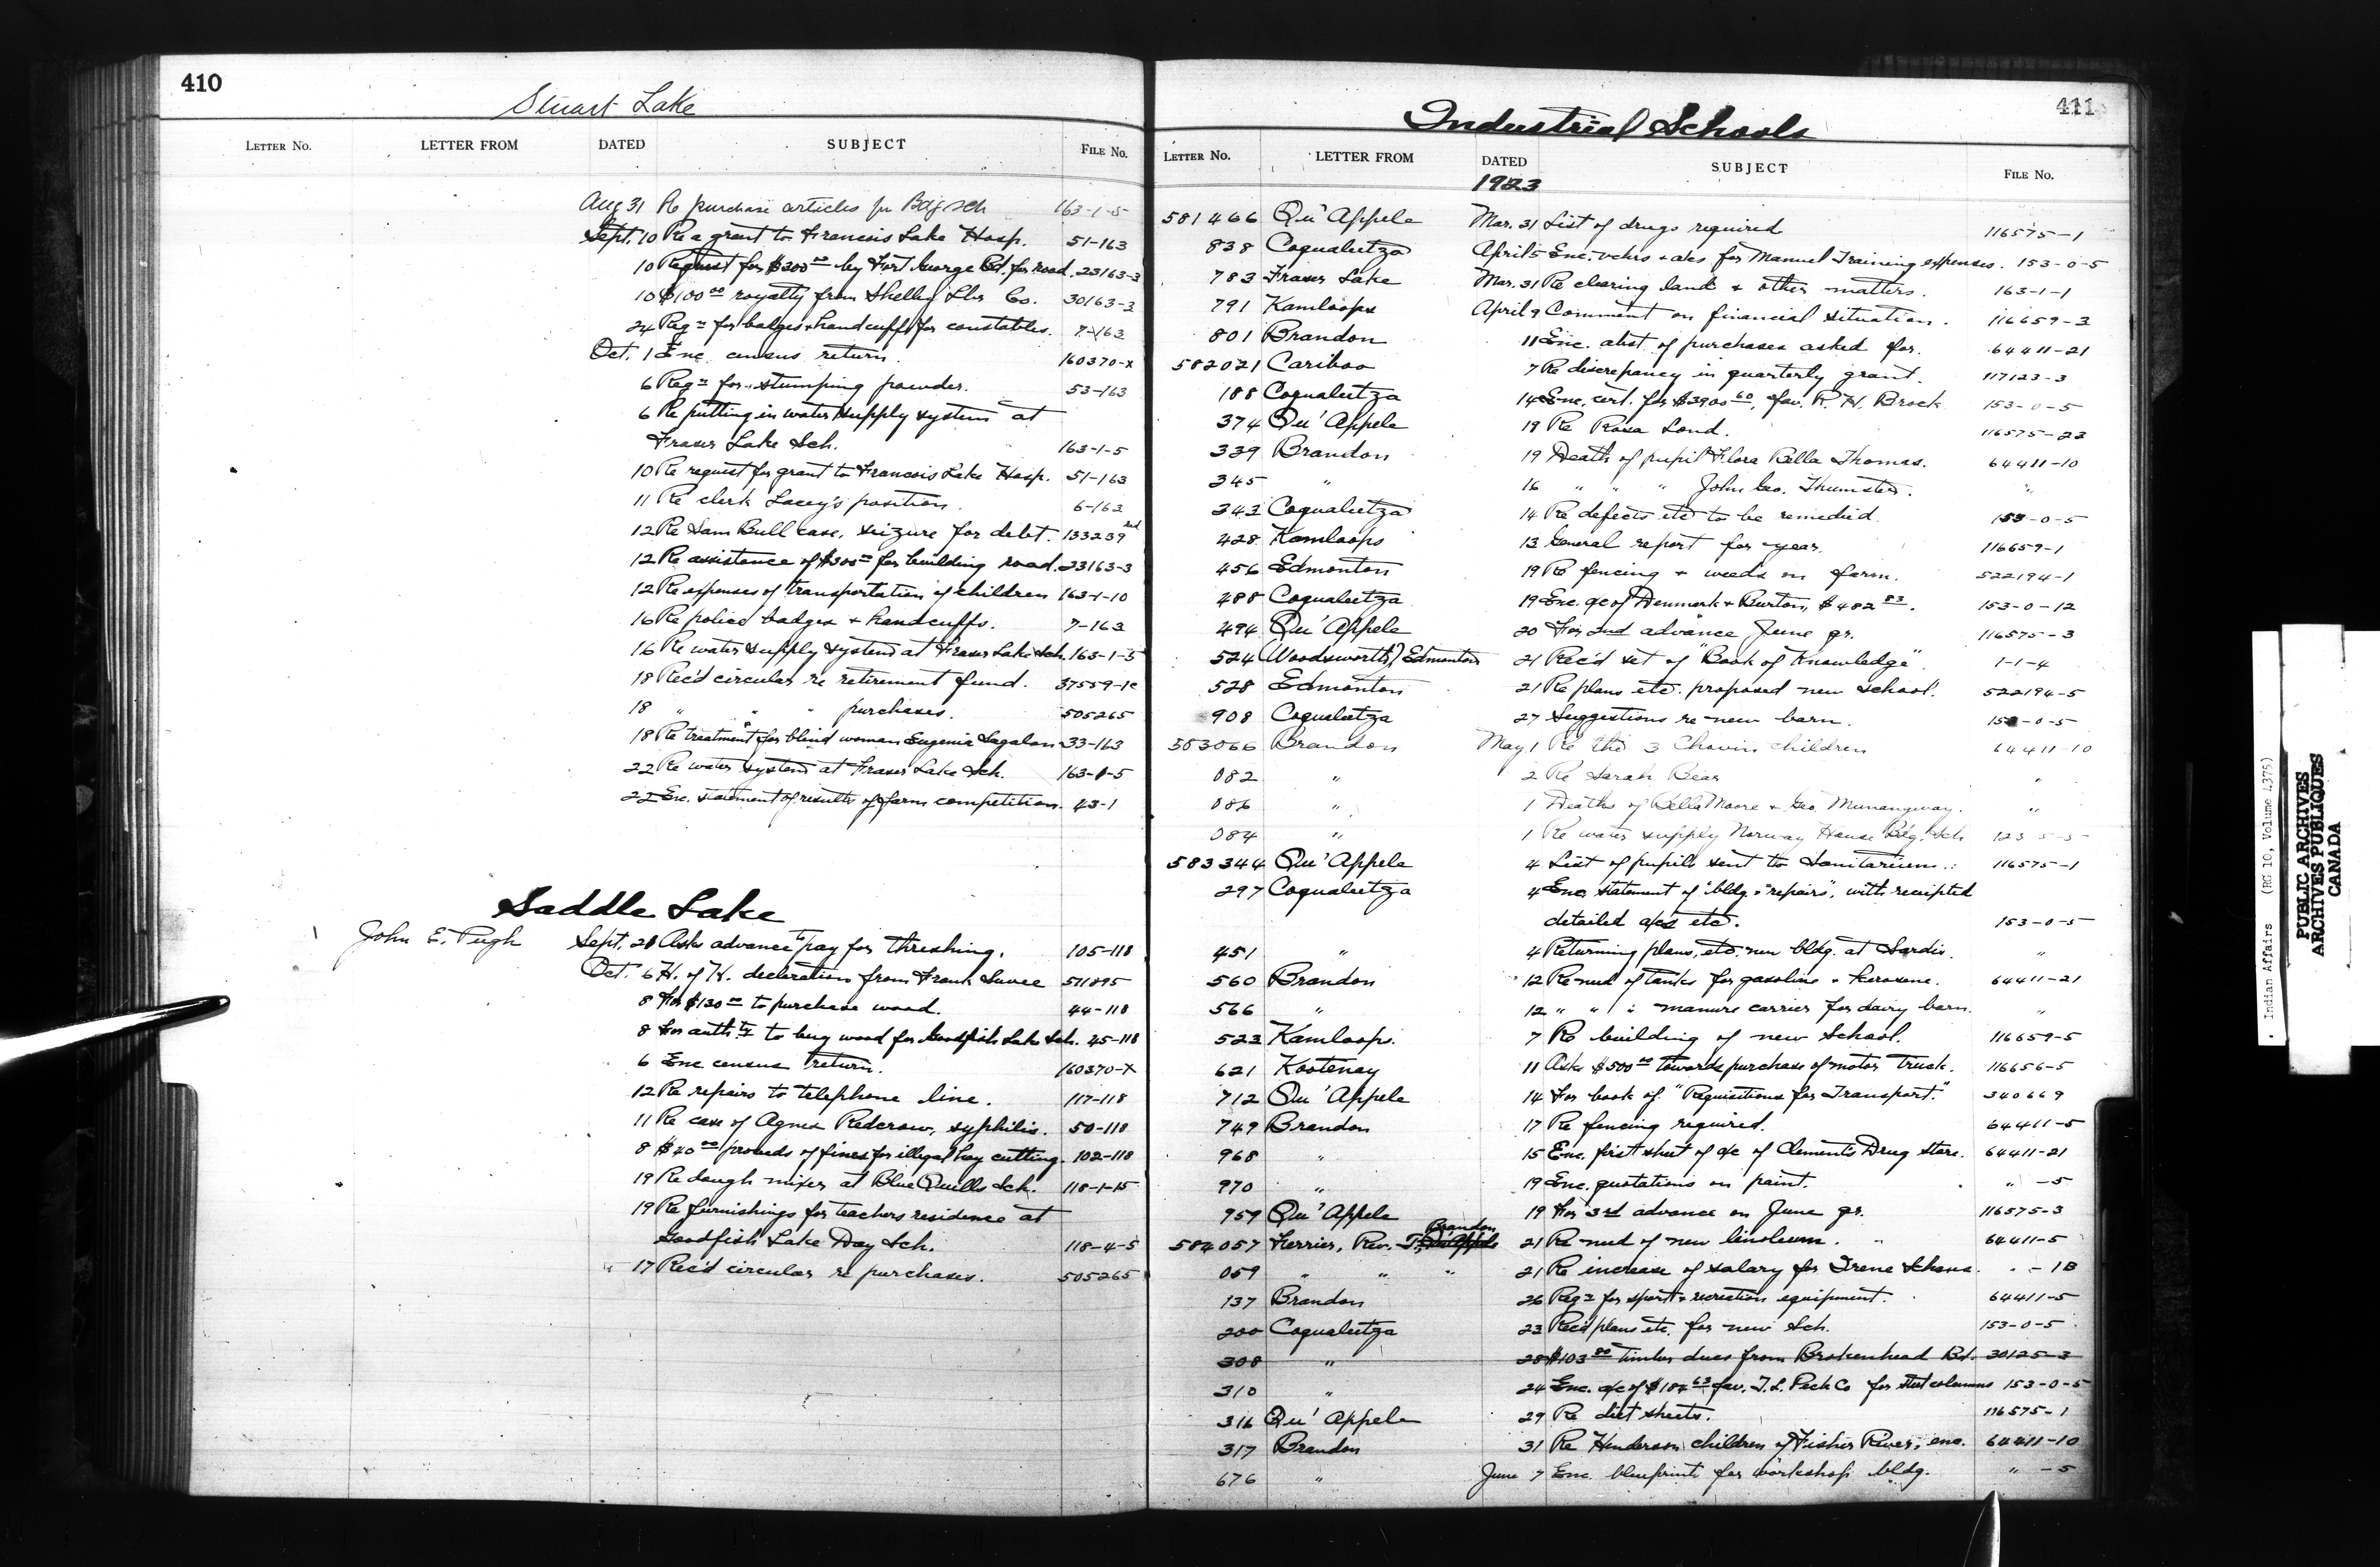 410
Stuart Lake
LETTER NO. LETTER FROM DATED SUBJECT FILE NO.
Aug 31 Re purchase articles for Bdg Sch 163-1-5
Sept. 10 Re a grant to Francois Lake Hosp. 51-163
10 Request for $300.00 by Fort George Bd. for road. 23163-3
10 $100.00 royalty from Shelly Lbr Co. 30163-3
24 Reqn for badges & handcuffs for constables. 7-163
Oct. 1 Enc. census return. 160370-X
6 Reqn for stumping powder. 53-163
6 Re putting in water supply system at
Fraser Lake Sch. 163-1-5
10 Re request for grant to Francois Lake Hosp. 51-163
11 Re clerk Lacey's position. 6-163
12 Re Sam Bull case, seizure for debt. 133239
12 Re assistance of $300.00 for building road. 23163-3
12 Re expenses of transportation of children 163-1-10
16 Re police badges & handcuffs. 7-163
16 Re water supply system at Fraser Lake Sch. 163-1-5
18 Rec'd circular re retirement fund. 37559-1c
18 " " " purchases. 505265
18 Re treatment for blind woman Eugenia 33-163
22 Re water system at Fraser Lake Sch. 163-1-5
22 Enc. statement of results of farm competition. 43-1
Saddle Lake
John E. Pugh Sept. 28 Asks advance to pay for threshing. 105-118
Oct. 6 H. of H. declaration from Frank 511895
8 For $130.00 to purchase wood. 44-118
8 For authty to buy wood for Goodfish Lake Sch. 45-118
6 Enc census return. 160370-X
12 Re repairs to telephone line. 117-118
11 Re case of Agnes Redcrow, syphilis. 50-118
8 $40.00 proceeds of fines for illegal hay cutting. 102-118
19 Re dough mixer at Blue Quills Sch. 118-1-15
19 Re furnishings for teachers residence at
Goodfish Lake Day Sch. 118-4-5
17 Rec'd circular re purchases. 505265
411
Industrial Schools
LETTER NO. LETTER FROM DATED SUBJECT FILE NO.
1923
581466 Qu'Appele Mar. 31 List of drugs required 116575-1
838 Coqualeetza April 5 Enc. vchrs & a/cs for Manuel Training expenses. 153-0-5
783 Fraser Lake Mar. 31 Re clearing land & other matters. 163-1-1
791 Kamloops April 9 Comment on financial situation. 116659-3
801 Brandon 11 Enc. abst. of purchases asked for. 64411-21
582021 Cariboo 7 Re discrepancy in quarterly grant. 117123-3
188 Coqualeetza 14 Enc. cert. for $3900.60, fav. R. H. Brock 153-0-5
374 Qu'Appele 19 Re Rosa Lond. 116575-23
339 Brandon 19 Death of pupil Flora Bella Thomas. 64411-10
345 " 16 " " " John Geo. "
343 Coqualeetza 14 Re defects etc to be remedied. 153-0-5
428 Kamloops 13 General report for year. 116659-1
456 Edmonton 19 Re fencing & weeds on farm. 522194-1
488 Coqualeetza 19 Enc. a/c of Denmark & Burton, $482.83. 153-0-12
494 Qu'Appele 20 For 2nd advance June qr. 116575-3
524 Woodsworth, Edmonton 21 Rec'd set of "Book of Knowledge". 1-1-4
528 Edmonton 21 Re plans etc. proposed new school. 522194-5
908 Coqualeetza 27 Suggestions re new barn. 153-0-5
583066 Brandon May 1 Re the 3 children 64411-10
082 " 2 Re Sarah Bear "
086 " 1 Deaths of Bella Moore & Geo. "
084 " 1 Re water supply Norway House Bdg. Sch
583344 Qu'Appele 4 List of pupils sent to Sanitarium. 116575-1
297 Coqualeetza 4 Enc. statement of "bldg. & repairs", with receipted
detailed a/cs etc. 153-0-5
451 " 4 Returning plans, etc, new bldg. at Sardis. "
560 Brandon 12 Re need of tanks for gasoline & kerosene. 64411-21
566 " 12 " " " manure carrier for dairy barn. "
523 Kamloops. 7 Re building of new School. 116659-5
621 Kootenay 11 Asks $500.00 towards purchase of motor truck. 116656-5
712 Qu'Appele 14 For book of "Requisitions for Transport." 340669
749 Brandon 17 Re fencing required. 64411-5
968 " 15 Enc. first sheet of a/c of Clement's Drug store. 64411-21
970 " 19 Enc. quotations on paint. " -5
959 Qu'Appele 19 For 3rd advance on June qr. 116575-3
584057 Ferrier, Rev. T. Brandon 21 Re need of new linoleum. 64411-5
059 " " " 21 Re increase of salary for Irene " -1B
137 Brandon 26 Reqn for sport & recreation equipment. 64411-5
200 Coqualeetza 23 Rec'd plans etc. for new Sch. 153-0-5
308 " 28 $103.80 timber dues from Brokenhead Bd. 30125-3
310 " 24 Enc. a/c of $184.63 fav. T. L. Peck Co for steel columns 153-0-5
316 Qu'Appele 29 Re diet sheets. 116575-1
317 Brandon 31 Re Henderson children of Fisher River, enc. 64411-10
676 " June 7 Enc. blueprints for workshop bldg. " -5
Indian Affairs (RG 10, Volume 4375)
PUBLIC ARCHIVES
ARCHIVES PUBLIQUES
CANADA